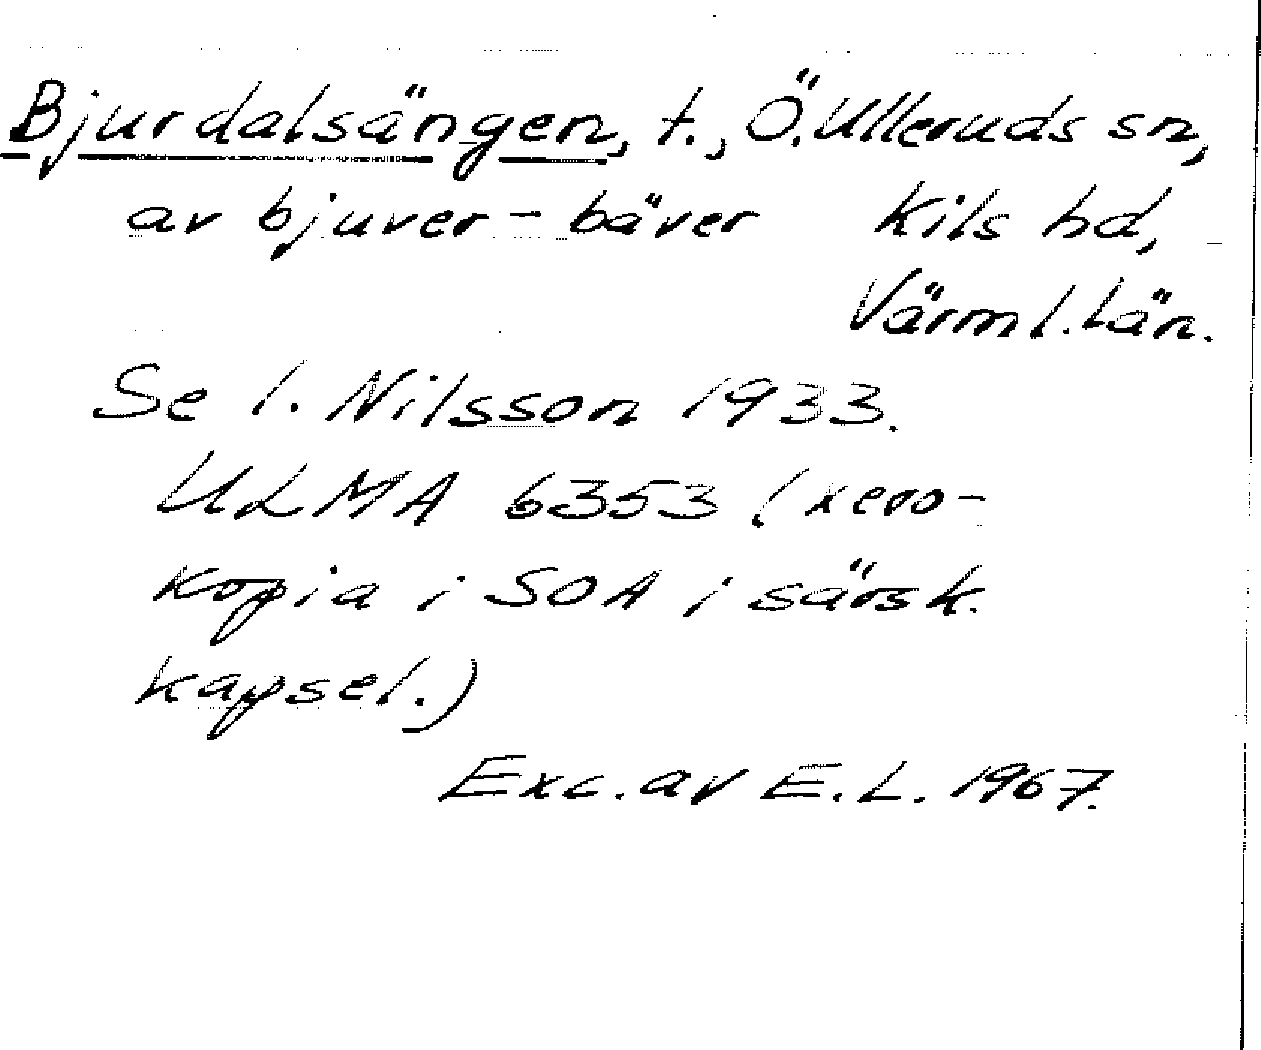 Bjurdalsängen, t., Ö. Ulleruds sn,
av bjuver - bäver Kils hd,
Värml. Län.
Se I. Nilsson 1933.
ULMA 6353 (xero-
kopia i SOA i särsk.
kapsel.)
Exc. av E. L. 1967.